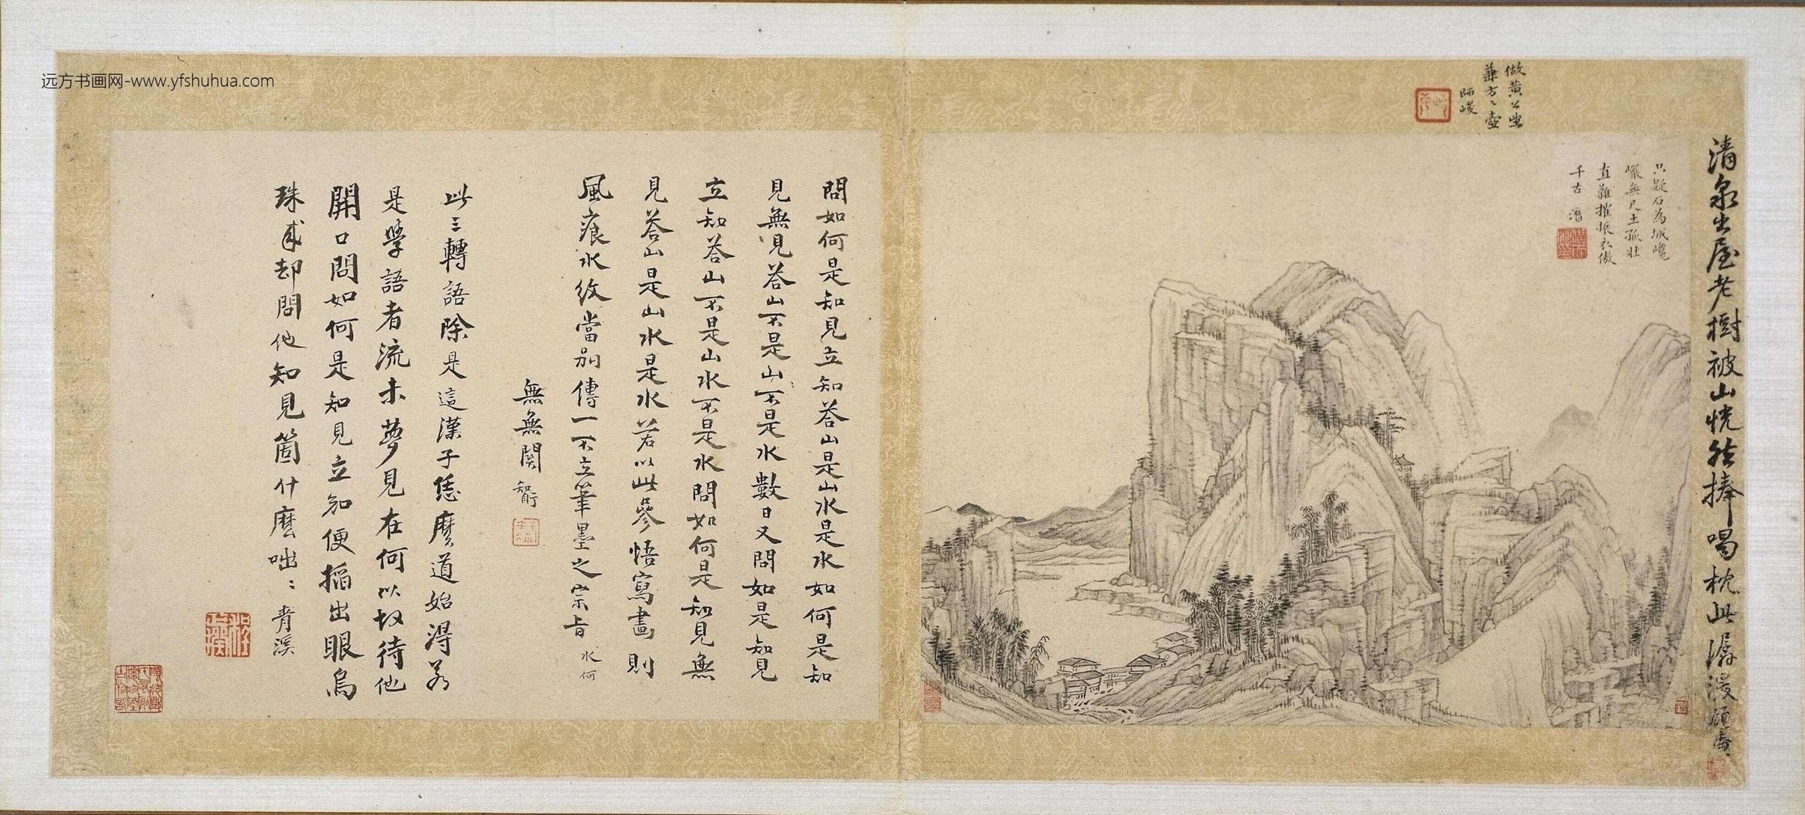 远方书画网-www.yfshuhua.com
倣黄公望
兼方方壺
師峻
清泉出屋老樹被山恍然捧喝枕此潺湲
只疑石為城巉
巖無尺土孤壯
直難摧振衣傲
千古
問如何是知見立知荅山是山水是水如何是知
見無見荅山不是山不是水數日又問如是知見
立知荅山不是山水不是水問如何是知見無
見荅山是山水是水若以此參悟寫畫則
風痕水紋當別傳一不立筆墨之宗旨 水何
無無關
此三轉語除是這漢子恁麼道始得若
是學語者流未夢見在何以故待他
開口問如何是知見立知便搯出眼烏
珠來却問他知見箇什麼咄咄 青溪